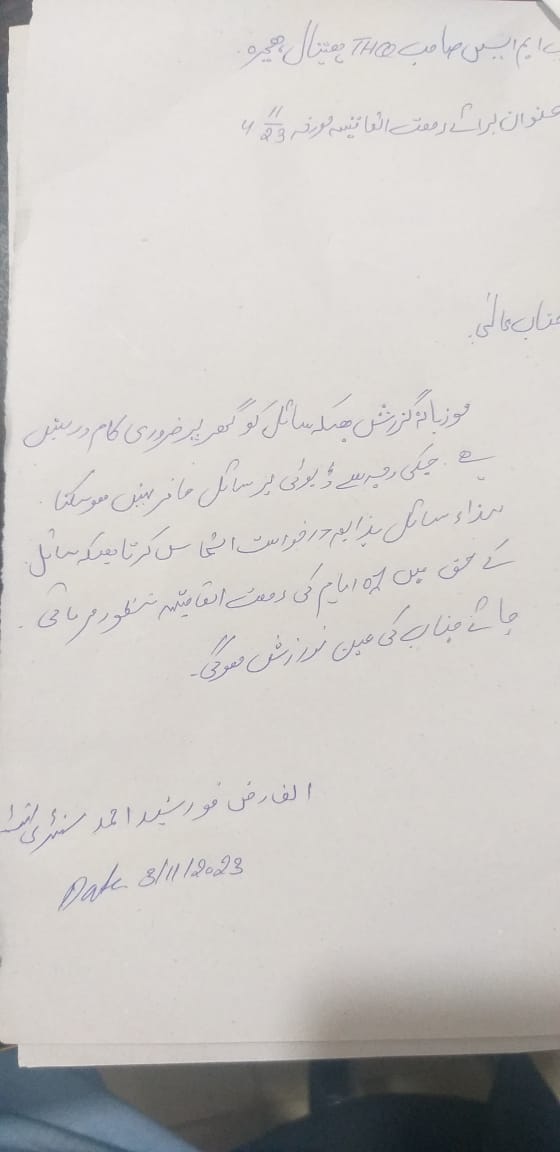 ایم ایس صاحب THQ ہسپتال ہجیرہ۔
عنوان برائے رخصت اتفاقیہ مورخہ 4 11/23
جناب عالی!
موزبانہ گزرش ھیکہ سائل کو گھر پر ضروری کام درپیش
ہے۔ جیکی وجہ سے ڈیوٹی پر سائل حاضر نہیں ہوسکتا
لہذاء سائل بذایہ درخواست التماس کرتا ہیکہ سائل
کے حق میں ایام کی رخصت اتفاقیہ منظور فرمائی
جائے جناب کی عین نوازش ہوگی۔
العارض خورشید احمد سنٹری
Date 3/11/2023